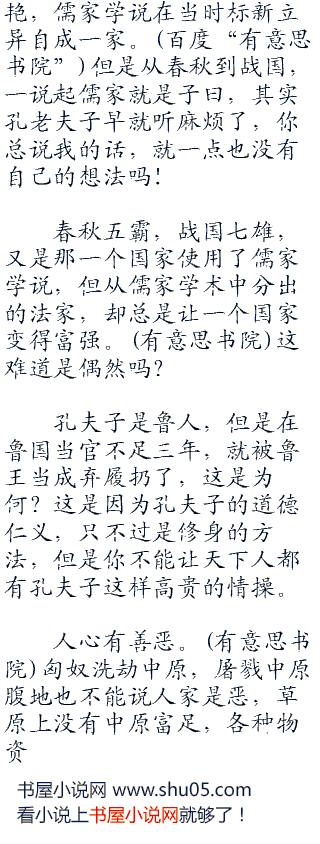 艳，儒家学说在当时标新立
异自成一家。(百度“有意思
书院”)但是从春秋到战国，
一说起儒家就是子曰，其实
孔老夫子早就听麻烦了，你
总说我的话，就一点也没有
自己的想法吗!
春秋五霸，战国七雄，
又是那一个国家使用了儒家
学说，但从儒家学术中分出
的法家，却总是让一个国家
变得富强。(有意思书院)这
难道是偶然吗?
孔夫子是鲁人，但是在
鲁国当官不足三年，就被鲁
王当成弃履扔了，这是为
何？这是因为孔夫子的道德
仁义，只不过是修身的方
法，但是你不能让天下人都
有孔夫子这样高贵的情操。
人心有善恶。(有意思书
院)匈奴洗劫中原，屠戮中原
腹地也不能说人家是恶，草
原上没有中原富足，各种物
资
书屋小说网 www.shu05.com
看小说上书屋小说网就够了！